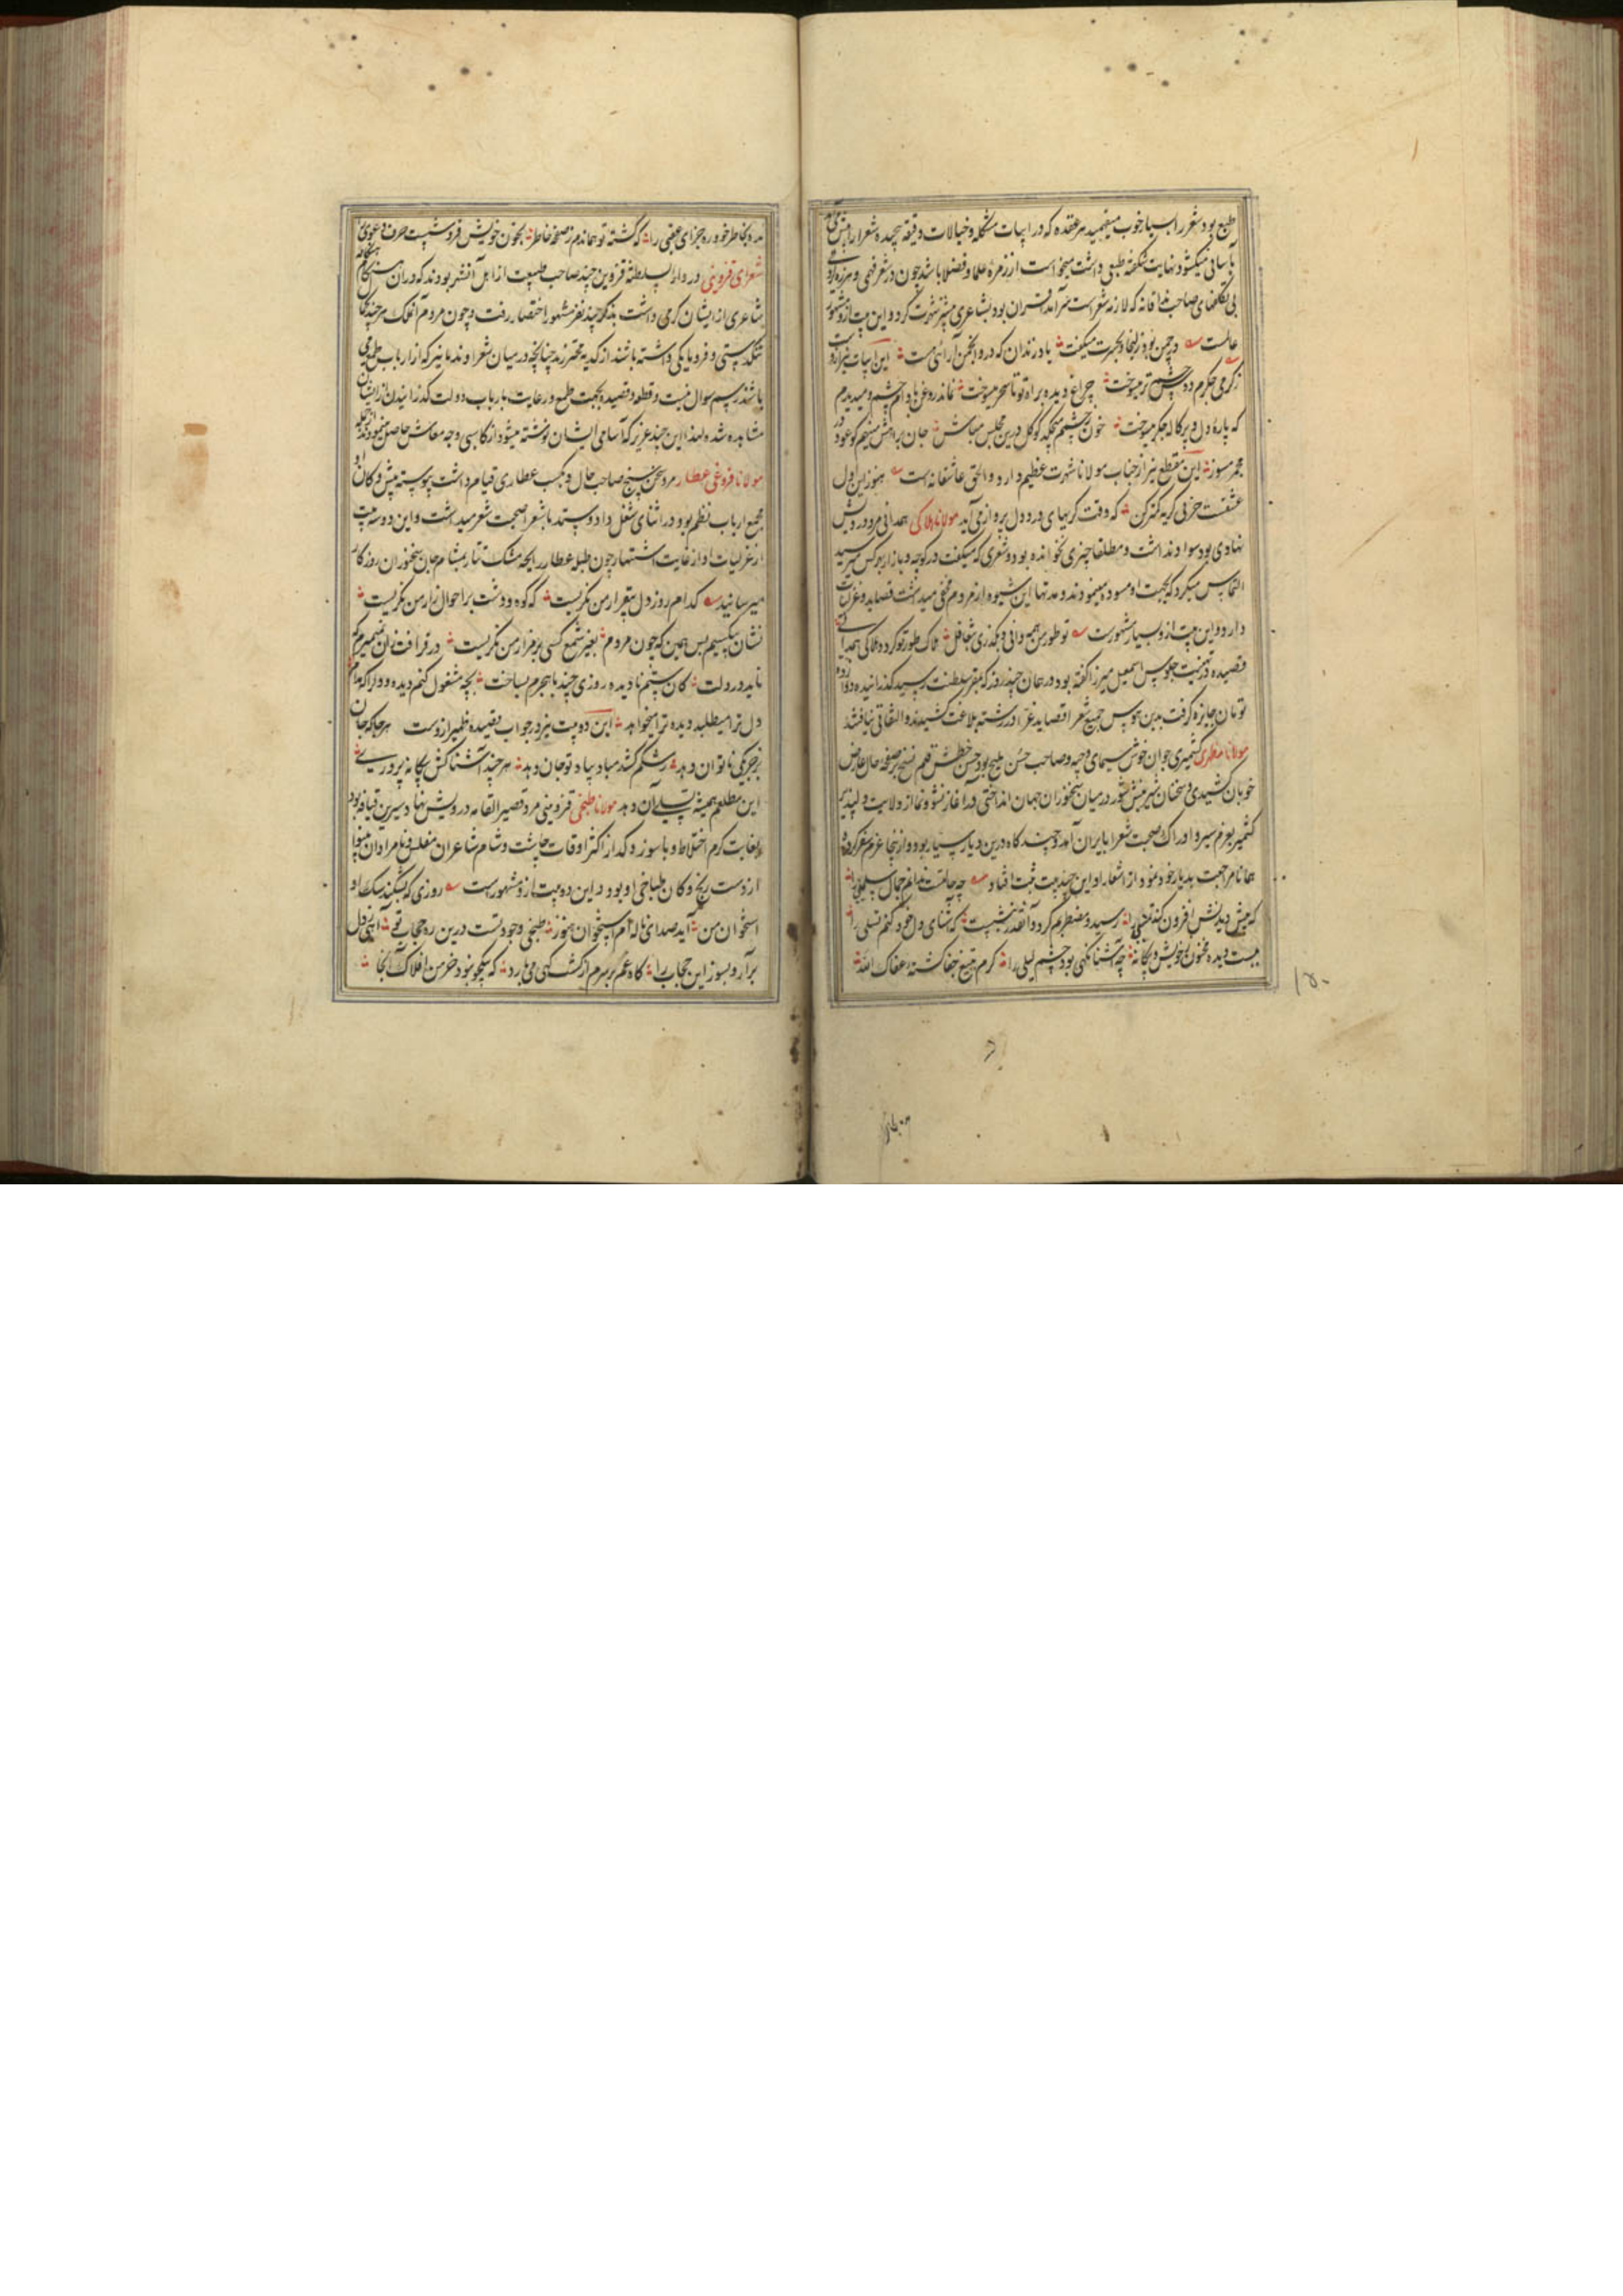 طبع بود شعر را بسیار خوب میفهمید هر عقده که در ابیات مشکله و خیالات دقیقه پیچیده شعرا را پیش می‌آمد
بآسانی میکشود نهایت شکفته طبعی داشت میخواست از زمره علما و فضلا باشد چون در شعر فهمی و
بی تکلفیهای صاحب مذاقانه که لازمه شعر است سرآمد اقران بود بشاعری بیشتر شهرت کرد و این بیت ازو مشهور
عالمست در چمن بود زلیخا و بحسرت میگفت یاد زندان که درو انجمن آرائی هست این ابیات نیز ازوست
ز گرمی جگرم دوش چشم تر میسوخت چراغ دیده براه تو تا سحر میسوخت نماند روغن بادام چشم و میدیدم
که پاره دل و پرکاله جگر میسوخت خون ز چشمم میچکید کو کل درین مجلس مباش جان بر آتش مینهم کو عود در
مجمر مسوز این مقطع نیز از جناب مولانا شهرت عظیم دارد و الحق عاشقانه است هنوز این اول
عشقست حزنی گریه کمتر کن که وقت گریهای درد دل پرداز می‌آید مولانا هلاکی همدانی مرد درویش
نهادی بود سواد نداشت و مطلقا چیزی نخوانده بود و شعری که میگفت در کوچه و بازار بهر کس میرسید
التماس میکرد که بجهت او مسوده مینمودند و مدتها این شیوه را از مردم مخفی میداشت قصاید و غزلیات
دارد و این بیت ازو بسیار مشهورست تو طور من همه دانی و بگذری بتغافل هلاک طور تو گردد هلاکی همدانی
قصیده در تهنیت جلوس اسمعیل میرزا گفته بود در همان چند روز که بمقر سلطنت رسید گذرانیده دوازده
تومان جایزه گرفت بدین هوس جمیع شعرا قصاید غرا در رشته بلاغت کشیدند و التفاتی نیافتند
مولانا مظهری کشمیری جوان خوش سیمای وجیه و صاحب حسن ملیح بود حسن خطش قلم نسخ بر صفحه حال عارض
خوبان کشیدی و سخنان شیرینش شور در میان سخنوران جهان انداختی در آغاز نشو و نما از ولایت دلپذیر
کشمیر بعزم سیر و ادراک صحبت شعرا بایران آمد و چند کاه درین دیار بسیار بود و از اینجا عزم سفر کرده
همانا مراجعت بدیار خود نمود از اشعار او این چند بیت ثبت افتاد چه حالتست ندانم جمال سلمی را
که بیش دیدنش افزون کند تمنی را رسید و مضطربم کرد و آنقدر ننشست که آشنای دل خود کنم تسلی را
ببست دیده مجنون ز خویش و بیگانه چه آشنا نگهی بود چشم لیلی را گرم بتیغ جفا کشته عفاک الله
مده بخاطر خود ره جزای عقبی را که کشته تو همان دم ز صفحه خاطر بخون خویش فرو شست حرف دعوی را
شعرای قزوینی در دارالسلطنه قزوین چند صاحب طبیعت از اهل آنشهر بودند که در آن هنگام هنگامه
شاعری از ایشان گرمی داشت بذکر چند نفر مشهور اختصار رفت و چون مردم آنملک هر چند کمال
تنگدستی و فرومایگی داشته باشند از گدیه محترزند چنانچه در میان شعرا و ندما نیز که از ارباب طمع می
باشند رسم سوال نیست و قطعه و قصیده بجهت طمع و رعایت بارباب دولت گذرانیدن از ایشان
مشاهده نشده لهذا این چند عزیز که اسامی ایشان نوشته میشود از کاسبی وجه معاش حاصل مینمودند از آنجمله
مولانا فروغی عطار مرد سخن سنج صاحب حال و بکسب عطاری قیام داشت پیوسته پیش دکان او
مجمع ارباب نظم بود و در اثنای شغل داد و ستد با شعرا صحبت شعر میداشت و این دو سه بیت
از غزلیات او از غایت اشتهار چون طبله عطار رایحه مشک تتار بمشام جان سخنوران روزگار
میرسانید کدام روز دل بیقرار من نگریست که کوه و دشت بر احوال زار من نگریست
نشان بیکسیم بس همین که چون مردم بغیر شمع کسی بر مزار من نگریست در فراقت زان نمیمیرم که
ناید در دلت کان ستم نادیده روزی چند با هجرم نساخت بچه مشغول کنم دیده و دل را که مدام
دل ترا میطلبد دیده ترا میخواهد این دو بیت نیز در جواب قصیده ظهیر ازوست هر جا که جان
بزجر یکی ناتوان دهد رشکم کشد مباد بیاد تو جان دهد هر چند آشنا کش بیگانه پروریست
این مطلعم همیشه تسلی آن دهد مولانا طبخی قزوینی مرد قصیر القامه درویش نهاد شیرین قیافه بود
بغایت گرم اختلاط و با سوز و گداز اکثر اوقات چاشت و شام شاعران مفلس و نامرادان بینوا
از دست رنج دکان طباخی او بود و این دو بیت ازو مشهورست روزی که بشکند سگ او
استخوان من آید صدای ناله‌ام از استخوان هنوز طبخی وجود تست درین ره حجاب تو آهی ز دل
برآر و بسوز این حجاب را کاه غم بر سرم از کشت کهی می‌بارد که بیکجو نبود خرمن افلاک آنجا
۱۵۰